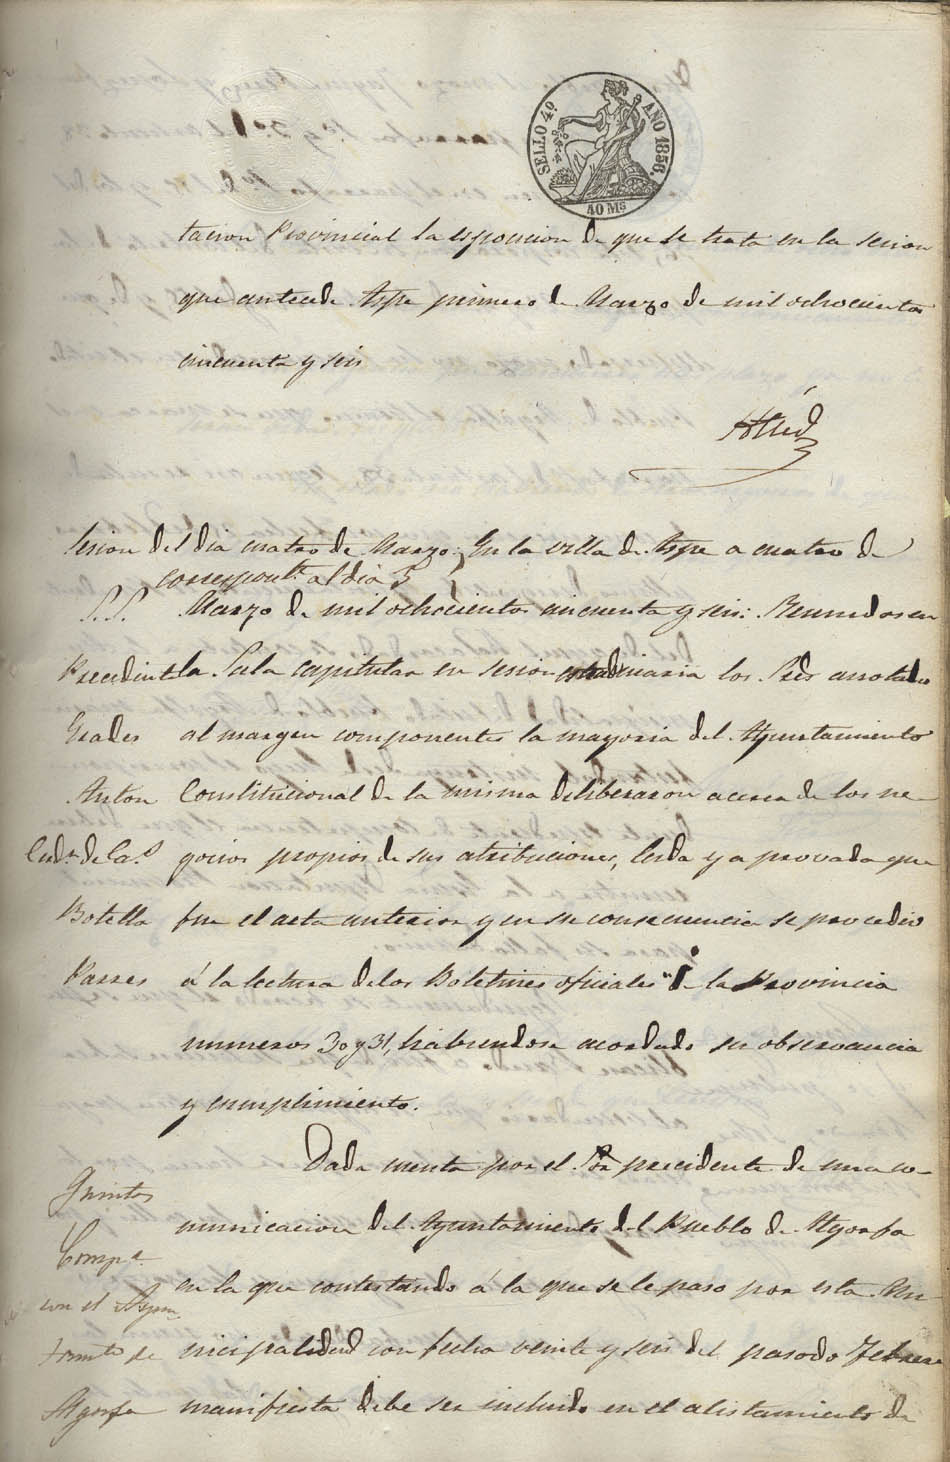 SELLO 4º. AÑO 1856.
40 Ms
tacion Provincial la esposicion de que se trata en la sesion
que antecede Aspe primero de Marzo de mil ochocientos
cincuenta y seis
Sesion del dia cuatro de Marzo; En la villa de Aspe a cuatro de
correspondte al dia 5
S.S. Marzo de mil ochocientos cincuenta y seis: Reunidos en
Precidente la Sala capitular en sesion estradinaria los Sres anotados
Grades al margen componentes la mayoria del Ayuntamiento
Anton Constitucional de la misma deliberaron acerca de los ne-
de Cas gocios propios de sus atribuciones, leida y aprovada que
Botella fue el acta anterior y en su consecuencia se procedio
Parres á la lectura de los Boletines oficiales de la Provincia
numeros 30 y 31, habiendose acordado su observancia
y cumplimiento.
Dada cuenta por el Sor precidente de una co-
Quintos
municacion del Ayuntamiento del Pueblo de Algorfa
Compa
en la que contestando á la que se le paso por esta Mu-
con el Ayun
tamto de nicipalidad con fecha veinte y seis del pasado Febrero
Algorfa manifiesta debe ser incluido en el alistamiento de